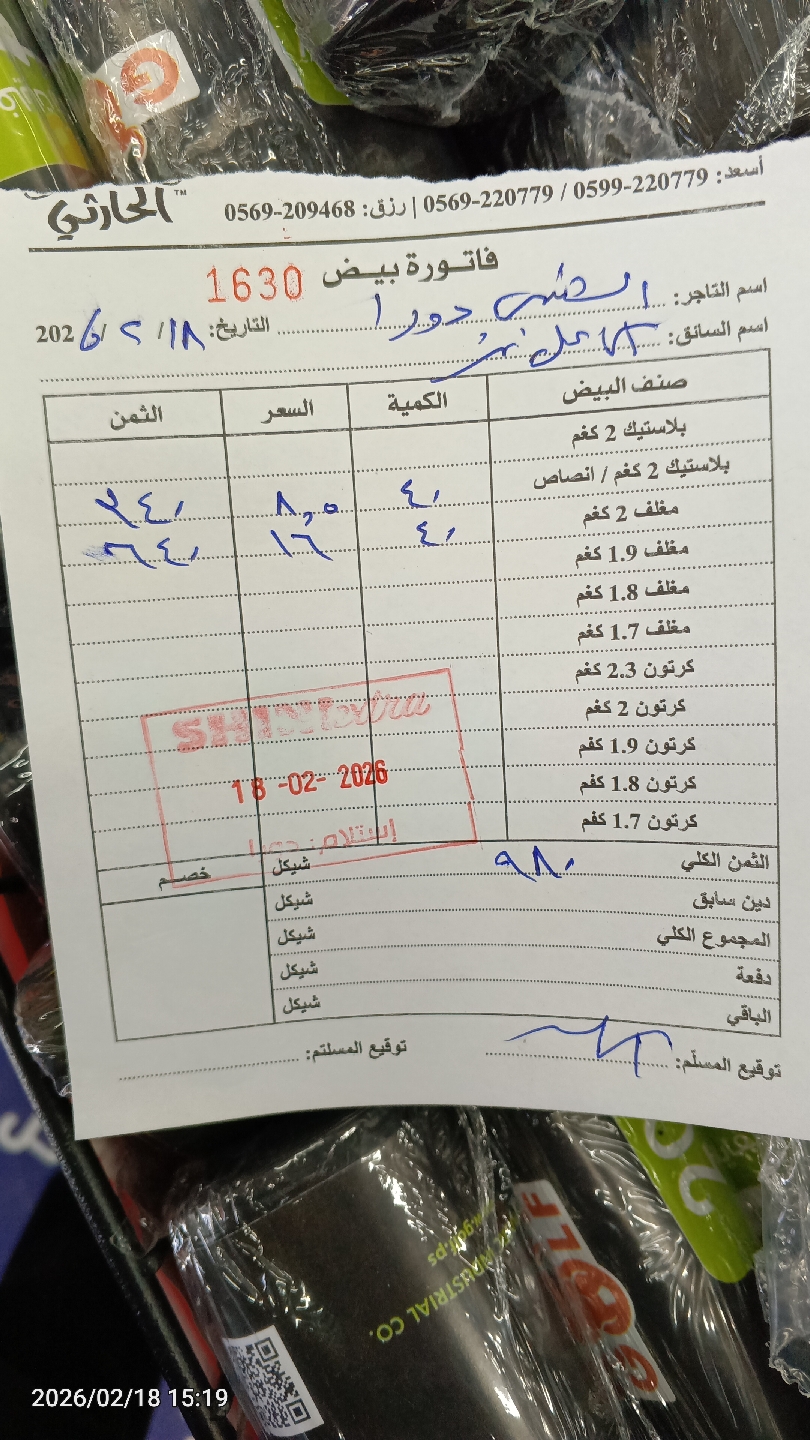 الحارثي™ أسعد: 0599-220779 / 0569-220779 | رزق: 0569-209468
فاتورة بيض 1630
اسم التاجر: دورا التاريخ: ١٨/ ٢ /2026
اسم السائق:
صنف البيض الكمية السعر الثمن
بلاستيك 2 كغم
بلاستيك 2 كغم / انصاص ٤٠ ٨,٥ ٣٤٠
مغلف 2 كغم ٤٠ ١٦ ٦٤٠
مغلف 1.9 كغم
مغلف 1.8 كغم
مغلف 1.7 كغم
كرتون 2.3 كغم
كرتون 2 كغم
كرتون 1.9 كغم
كرتون 1.8 كغم
كرتون 1.7 كغم
extra
18 -02- 2026
إستلام: دورا
الثمن الكلي ٩٨٠ شيكل خصم
دين سابق شيكل
المجموع الكلي شيكل
دفعة شيكل
الباقي شيكل
توقيع المسلّم: توقيع المستلم:
GOLF
INDUSTRIAL CO.
2026/02/18 15:19